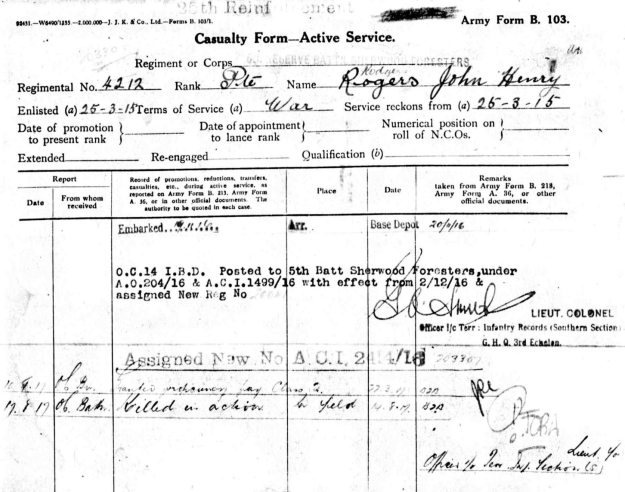 25th Reinforcement
92431.—W6490/1355.—2,000,000—J. J. K. & Co., Ltd.—Forms B. 103/1.
Army Form B. 103.
Casualty Form—Active Service.
Regiment or Corps FORESTERS
Regimental No. 4212 Rank Pte Name Rogers John Henry
Enlisted (a) 25-3-15 Terms of Service (a) War Service reckons from (a) 25-3-15
Date of promotion to present rank
Date of appointment to lance rank
Numerical position on roll of N.C.Os.
Extended Re-engaged Qualification (b)
Report
Date
From whom received
Record of promotions, reductions, transfers, casualties, etc., during active service, as reported on Army Form B. 213, Army Form A. 36, or in other official documents. The authority to be quoted in each case.
Place
Date
Remarks
taken from Army Form B. 213, Army Form A. 36, or other official documents.
Embarked Arr. Base Depot
O.C.14 I.B.D. Posted to 5th Batt Sherwood Foresters, under
A.O.204/16 & A.C.I.1499/16 with effect from 2/12/16 &
assigned New Reg No
LIEUT. COLONEL
Officer i/c Terr: Infantry Records (Southern Section)
G. H. Q. 3rd Echelon.
Assigned New No A.C.I. 2414/16
pay Class
17.8.17 Killed in action field
Lieut
Officer i/c Section